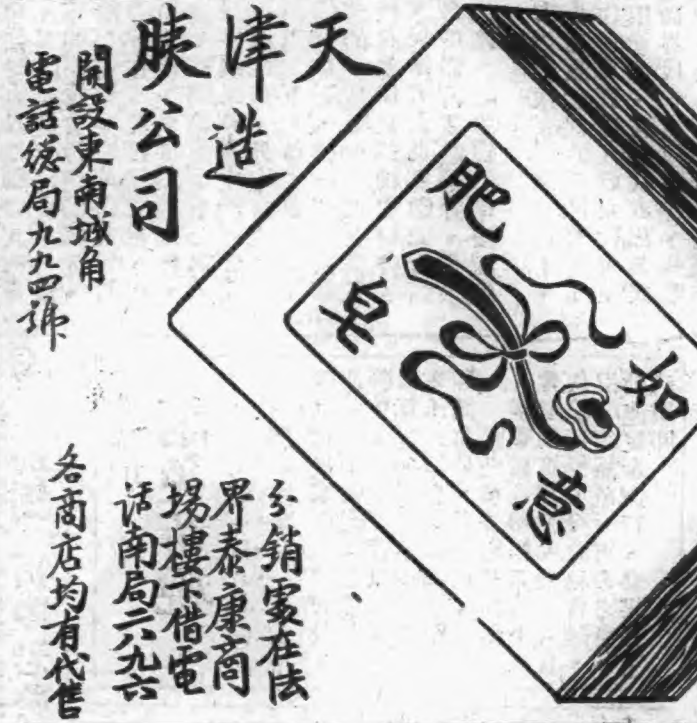 天津造
胰公司
開設東南城角
電話總局九九四號
如意
肥皂
分銷處在法
界泰康商
場樓下借電
话南局二八九六
各商店均有代售